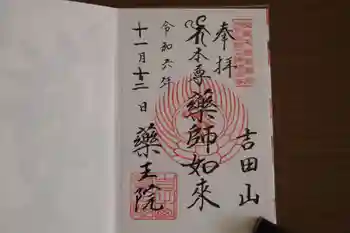 奉拝
吉田山
本尊 藥師如來
令和六年
十一月十二日
藥王院